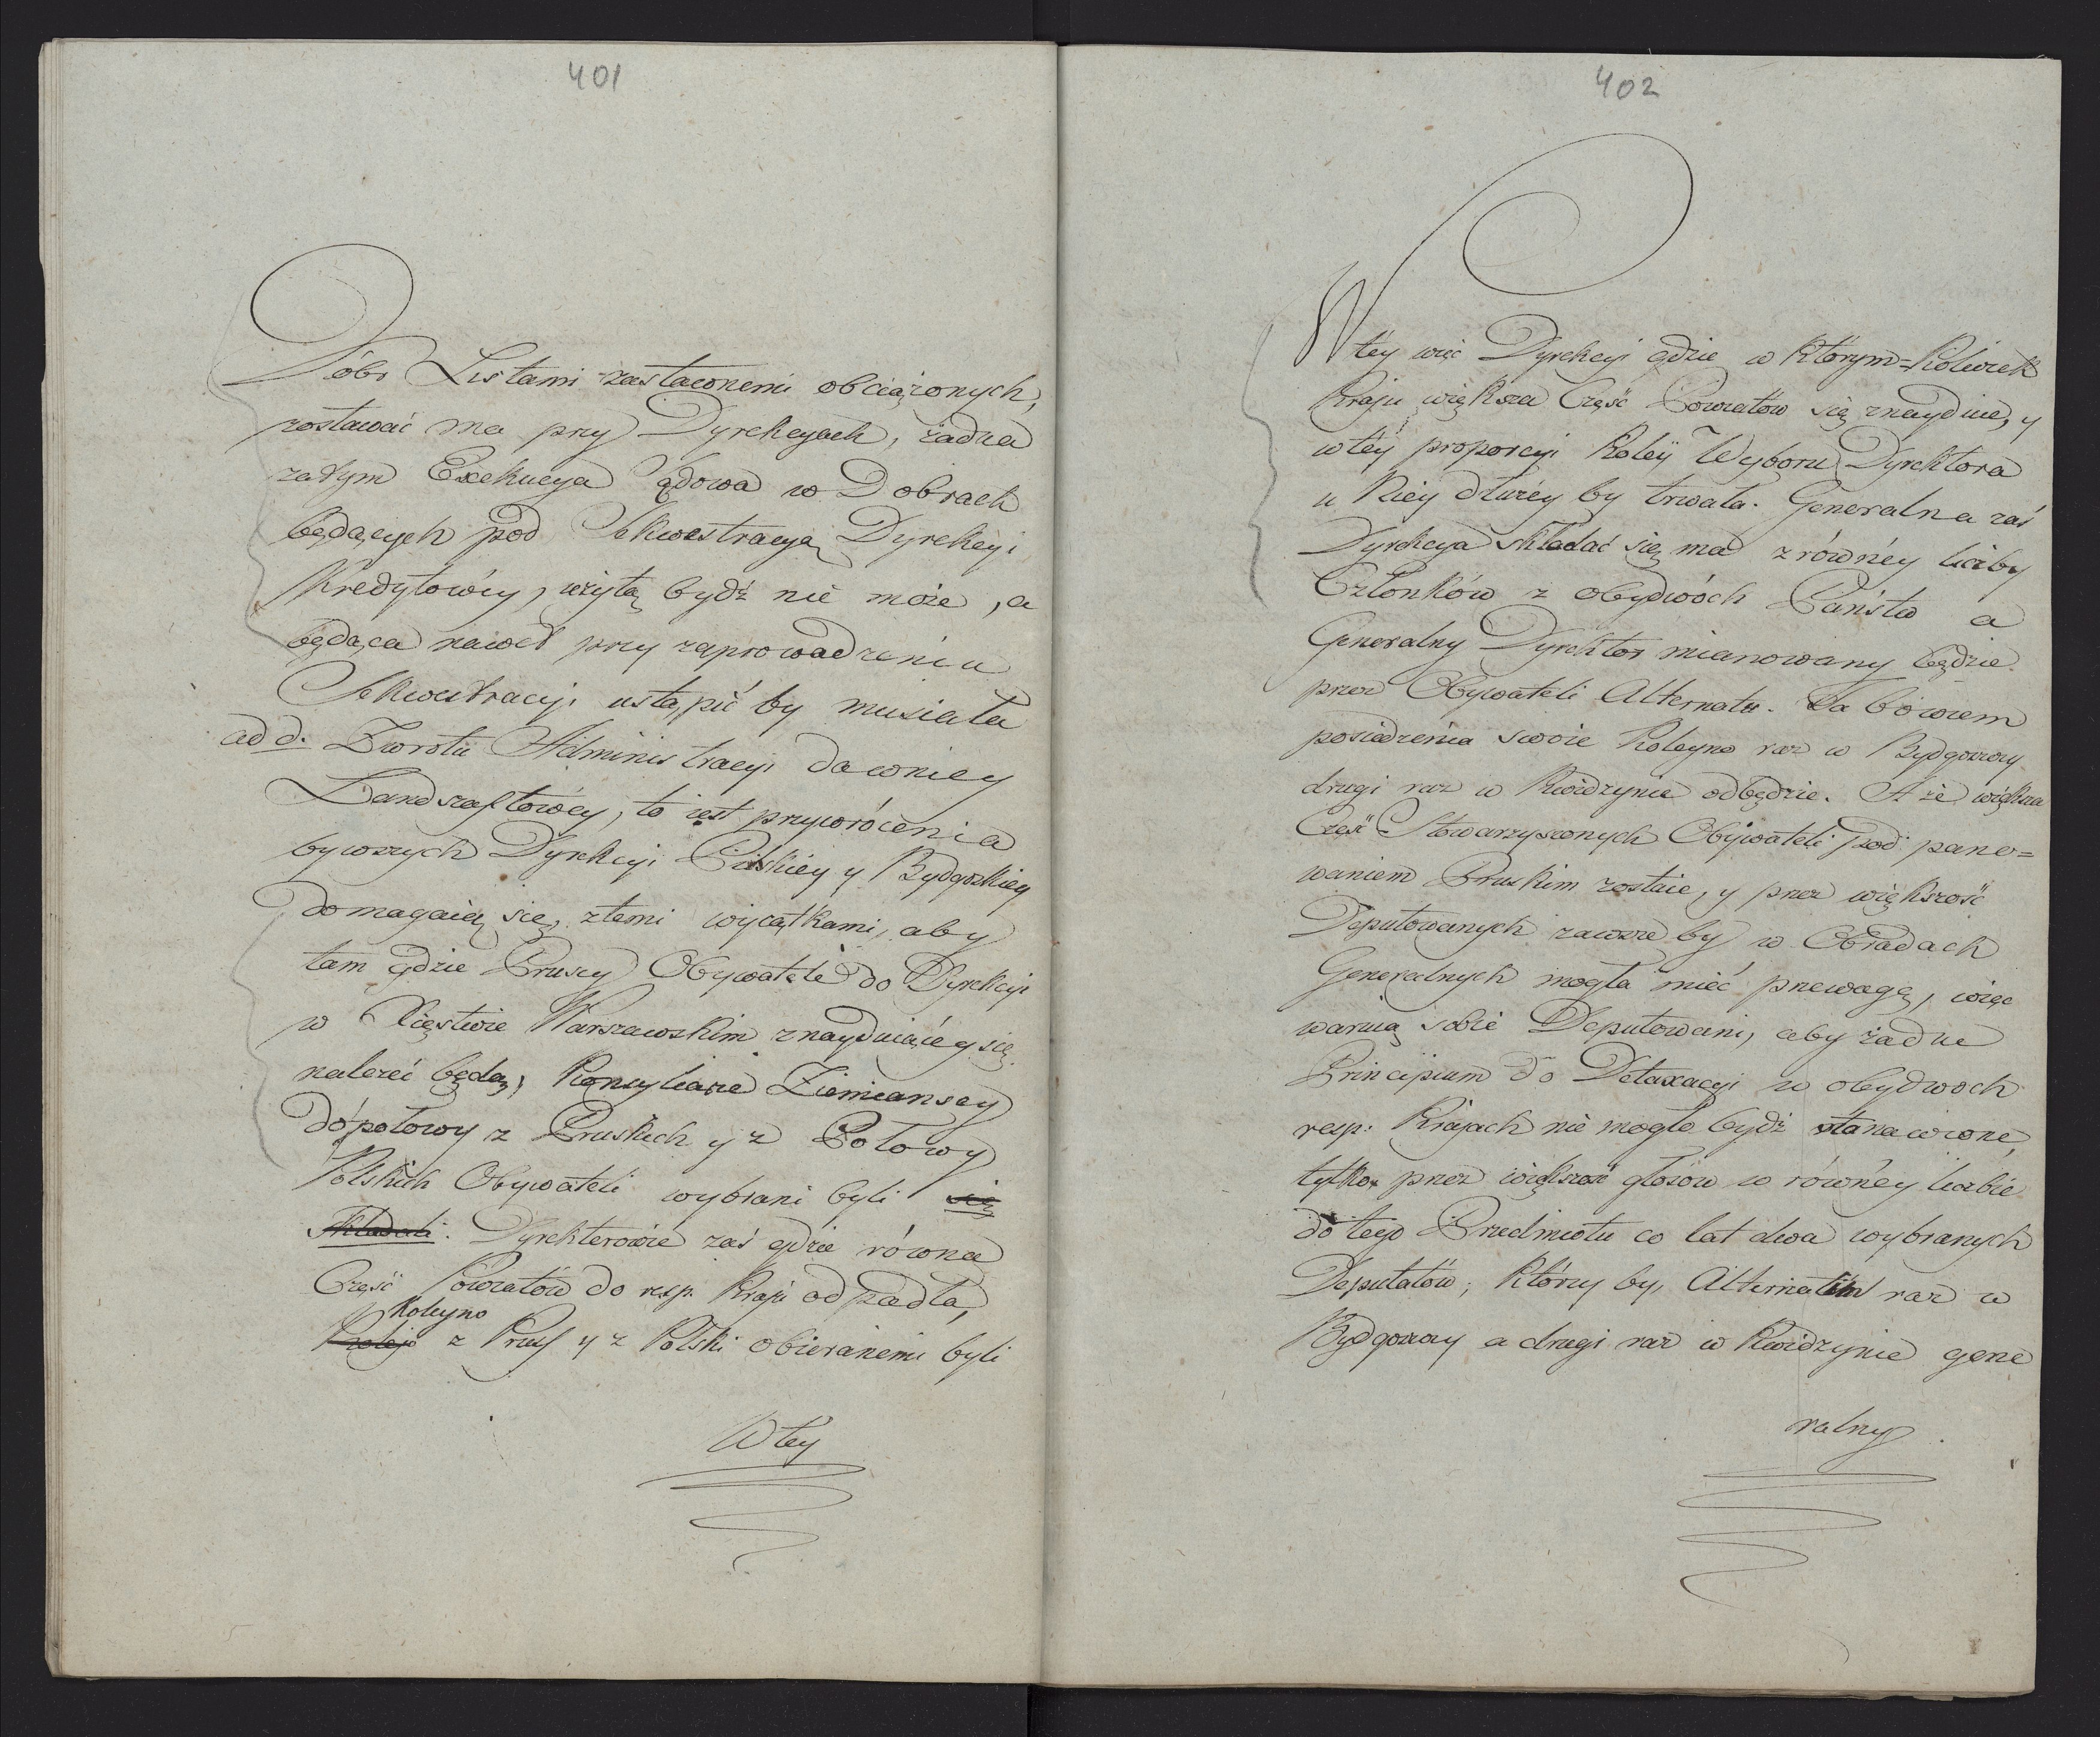 401
Dóbr Listami zastawnemi obciążonych,
zostawać ma przy Dyrekcyach, żadna
zatym Exekucya Sądowa w Dobrach
będących pod Sekwestracyą Dyrekcyi
Kredytowéy, użytą bydź nie może, a
będąca nawet przy zaprowadzeniu
Sekwestracyi ustąpić by musiała
ad d. Zwrotu Administracyi dawniey
Landszaftowéy, to iest przywrócenia
bywszych Dyrekcyi Pilskiéy y Bydgoskiey
domagaią się, z temi wyiątkami, aby
tam gdzie Pruscy Obywatele do Dyrekcyi
w Xięstwie Warszawskim znayduiącéy się
należeć będą, Konsyliarze Ziemianscy
do połowy z Pruskich y z Połowy
Polskich Obywateli wybrani byli się
składali. Dyrektorowie zaś gdzie równa
Część Powiatów do resp. Kraju odpadła,
Koleyno
koleją z Pruss y z Polski obieranemi byli
W tey
402
W tey więc Dyrekcyi gdzie w którym=kolwiek
Kraju większa Część Powiatów się znayduie, y
w téy proporcyi koléy Wyboru Dyrektora
u Niéy dłużéy by trwała. Generalna zaś
Dyrekcya składać się ma z równéy liczby
Członków z obydwóch Państw a
Generalny Dyrektor mianowany będzie
przez Obywateli Alternatu. Ta bowiem
posiedzenia swoie koleyno raz w Bydgoszczy
drugi raz w Kwidzynie odbędzie. A że większa
Część Stowarzyszonych Obywateli pod pano=
waniem Pruskim zostaie, y przez większość
Deputowanych zawsze by w Obradach
Generalnych mogła mieć przewagę, więc
waruią sobie Deputowani, aby żadne
Principium do Detaxacyi w obydwoch
resp: Krajach nie mogło bydź stanowione,
tylko przez większość głosów w równéy liczbie
do tego Przedmiotu co lat dwa wybranych
Deputatów, którzy by, Alternatim raz w
Bydgoszczy a drugi raz w Kwidzynie gene
ralny